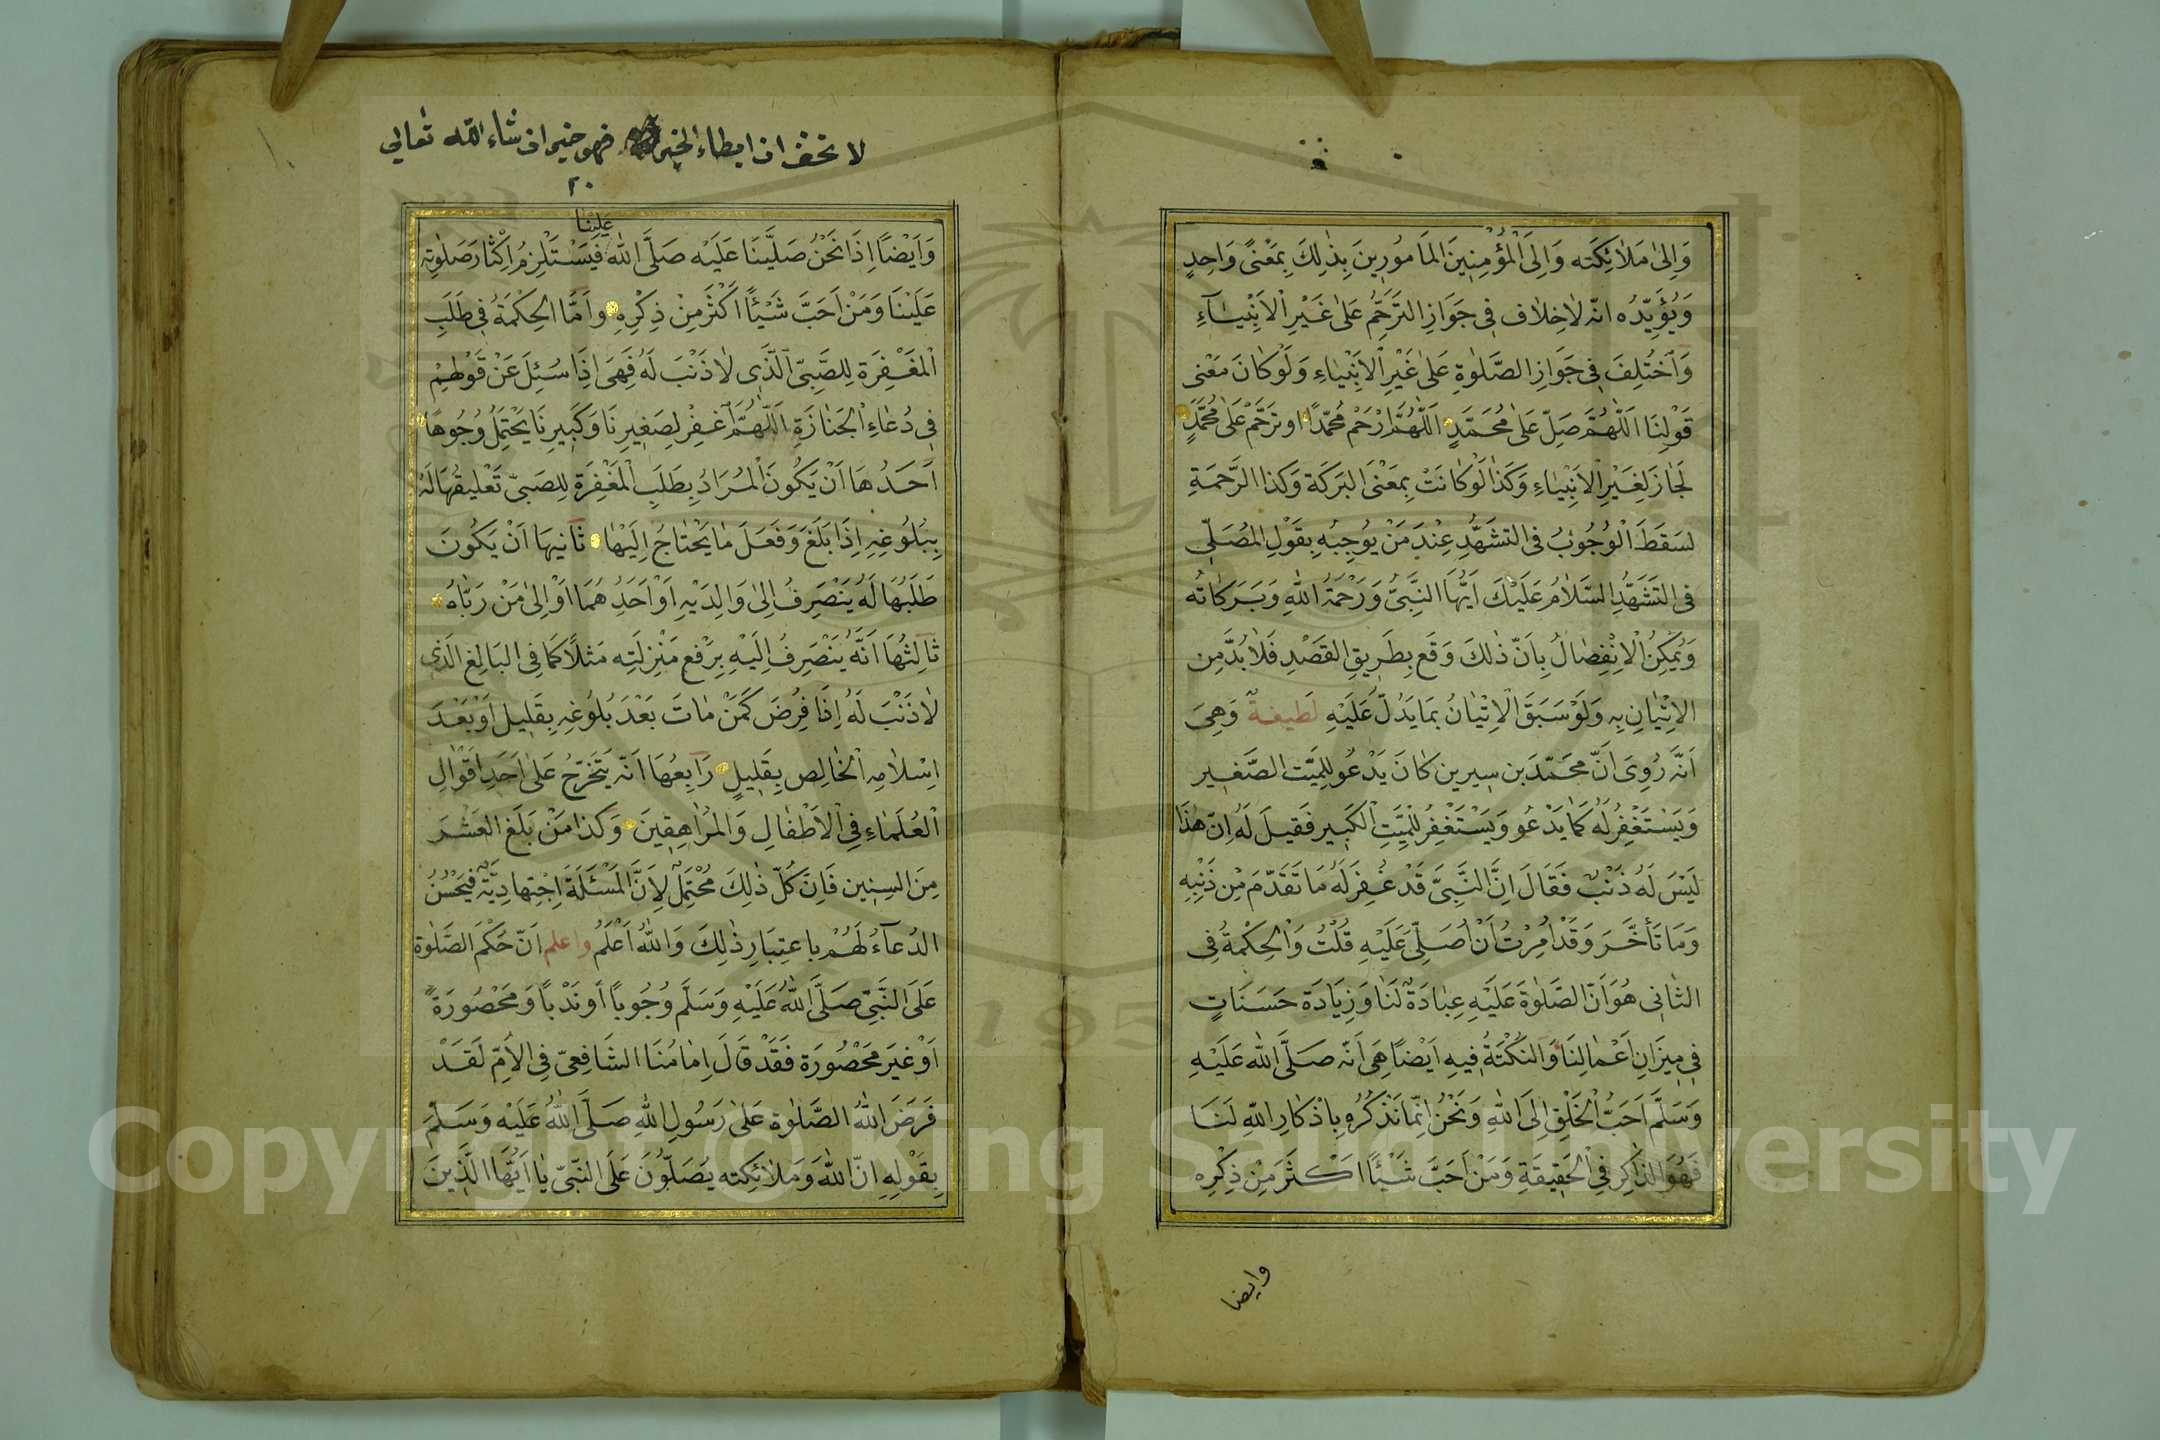 وَاِلىٰ مَلاٰئِكَتِه وَاِلَى الْمُؤْمِنِينَ المَامُورِينَ بِذٰلِكَ بِمَعْنًى وَاحِدٍ
وَيُؤَيِّدُه انّه لاٰخِلاٰف فِى جَوَازِ التَرَحُّمِ عَلىٰ غَيْرِ اْلاَنْبِيٰآءِ
وَاَخْتُلِفَ فِى جَوَازِ الصَّلٰوةِ عَلىٰ غَيْرِ اْلاَنْبِيٰاءِ وَلَوْ كاٰنَ مَعْنى
قَوْلِنَا اَللّٰهُمَّ صَلِّ عَلىٰ مُحَمَّدٍ اَللّٰهُمَّ ارْحَمْ مُحَمَّدًا او تَرَحَّمْ عَلىٰ مُحَمَّدٍ
لَجٰازَ لِغَيْرِ اْلاَنْبِيٰاءِ وَكَذٰا لَوْ كاٰنَتْ بِمَعْنَى البَرَكَة وَكَذا الرَّحْمَةِ
لسَقَطَ اْلوُجُوبُ فى التشَهُّدِ عِنْدَ مَنْ يُوجِبُه بِقَوْلِ المُصَلّى
فى التَشَهُّدِ السَّلاٰمُ عَلَيْكَ اَيُّهَا النَّبِىُّ وَرَحْمَةُ اللهِ وَبَرَكاٰتُه
وَيُمْكِنُ اْلاِنْفِصٰالُ بِاَنَّ ذٰلكَ وَقَعَ بِطَرِيقِ القَصْدِ فَلاٰ بُدَّ مِن
الاِتْيٰانِ بِه وَلَوْ سَبَقَ اْلاِتْيٰانُ بمَا يَدُلّ عَلَيْهِ لَطيفةٌ وَهِىَ
اَنَّه رُوِىَ اَنَّ محَمّدَ بن سيرين كاٰنَ يَدْعُو لِلمَيّت الصَّغير
وَيَسْتَغْفِرُ لَهُ كَمٰا يَدْعُو وَيَسْتَغْفِرُ لِلْمَيِّتِ الْكَبير فَقيلَ لَه اِنّ هٰذَا
لَيْسَ لَهُ ذَنْبٌ فَقَالَ اِنَّ النَّبِىَّ قَدْ غُفِرَ لَهُ مَا تَقَدّمَ مِنْ ذَنْبِهِ
وَمَا تَأخَّرَ وَقَدْ اُمِرْتُ اَنْ اُصَلِّىَ عَلَيْهِ قُلْتُ وَاْلحِكْمَةُ فِى
الثانى هُوَ اَنّ الصَّلٰوةَ عَلَيْهِ عِبٰادَةٌ لَنٰا وَزِيَادَة حَسَنَاتٍ
فى مِيزَانِ اَعْمٰالِنَا وَالنُكْتَةُ فِيهِ اَيْضًا هِىَ اَنّه صَلَّى الله عَلَيْهِ
وَسَلَّمَ اَحَبُّ الْخَلْقِ اِلَى اللهِ وَنَحْنُ اِنّمَا نَذْكُرُهُ بِاذْكاٰرِ اللهِ لَنَا
فَهُوَ الذاكِر فِى الْحَقيقَةِ وَمَنْ اَحَبَّ شَيْئًا اكْثَرَ مِنْ ذِكْرِه
وايضا
لا تخف ان ابطاء الخير فهو خير ان شاء الله تعالى
٢٠
عَلَيْنَا
وَاَيْضًا اِذَا نَحْنُ صَلَّيْنَا عَلَيْه صَلَّى الله فَيَسْتَلْزِمُ اِكْثارَ صَلٰوتِه
عَلَيْنَا وَمَنْ اَحَبَّ شَيْئًا اَكْثَرَ مِنْ ذِكْرِهِ وامَّا الحِكْمَةُ فِى طَلَبِ
اْلمَغْفِرَة لِلصَّبىّ الَّذى لاٰ ذَنْبَ لَهُ فَهِىَ اِذَا سُئِلَ عَنْ قَوْلِهِمْ
فِى دُعٰاءِ الْجَنٰازَةِ اَللّٰهُمَّ اغْفِرْ لِصَغيرِنَا وَكَبيرِنَا يَحْتَمِلُ وُجُوهًا
اَحَدُهَا اَنْ يَكُونَ اْلمُرَادُ بِطَلَبِ الْمَغْفِرَة لِلصَبىّ تَعْليقُهَا لَهُ
بِبُلُوغِهِ اِذَا بَلَغَ وَفَعَلَ مٰا يَحْتٰاجُ اِلَيْهٰا ثَانيهَا اَنْ يَكُونَ
طَلَبُهَا لَهُ يَنْصَرِفُ اِلىٰ وَالِدَيْهِ اَوْ اَحَدِهُمَا اَوْ اِلىٰ مَنْ رَبّٰاهُ
ثَالِثُهَا اَنَّهُ يَنْصَرِفُ اِلَيْهِ بِرَفْعِ مَنْزِلَتِه مَثلاً كَمَا فِى البَالِغ الّذى
لاٰ ذَنْبَ لَه اِذَا فُرِضَ كَمَنْ مٰاتَ بَعْدَ بُلُوغِه بِقَليل اَوْ بَعْدَ
اِسْلاٰمِه الْخٰالِص بِقَليلٍ رَابِعُهَا اَنّه يَتَخَرَّجُ عَلىٰ اَحَدِ اَقْوٰالِ
اْلعُلَمٰاءِ فِى اْلاَطْفٰالِ وَالْمُرٰاهِقِينَ وَكَذا مَنْ بَلَغَ العَشْرَ
مِنَ السِنين فَاِنَّ كُلّ ذٰلِكَ مُحْتَمِلٌ لِاَنَّ المَسْئَلَةَ اِجْتِهادِيَّةٌ فَيَحْسُنُ
الدُعآءُ لَهُمْ باعتِبَارِ ذٰلِكَ وَاللهُ اَعْلَمُ واعلم اَنّ حُكْمَ الصَّلٰوة
عَلَى النَّبِىِّ صَلَّى اللهُ عَلَيْهِ وَسَلَّم وُجُوبًا اَوْ نَدْبًا وَمَحْصُورَةً
اَوْ غيرَ مَحْصُورَة فَقَدْ قَالَ اِمٰامُنَا الشَافِعىّ فِى الاُمِّ لَقَدْ
فَرَضَ اللهُ الصَّلٰوة عَلىٰ رَسُولِ اللهِ صَلَّى اللهُ عَلَيْه وَسَلَّمَ
بِقَوْلِهِ انّ اللهَ وَمَلاٰئِكته يُصَلُّونَ عَلَى النَّبىّ يٰا اَيُّهَا الَّذينَ
Copyright © King Saud University